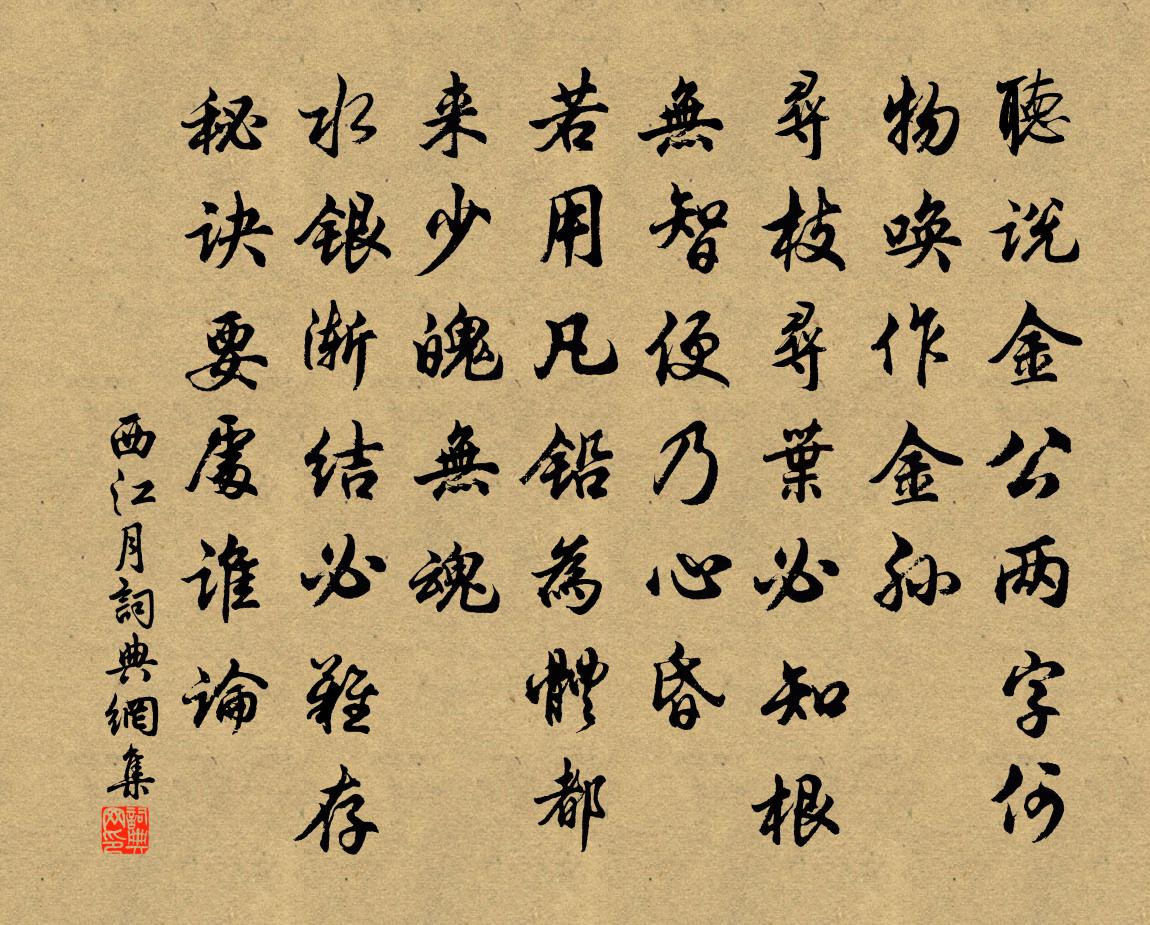 聽説金公两字何
物唤作金孙
尋枝尋葉必知根
無智便乃心昏
若用凡鉛為體都
来少魄無魂
水銀漸结必難存
秘诀要處谁論
西江月詞典網集
詞典网印